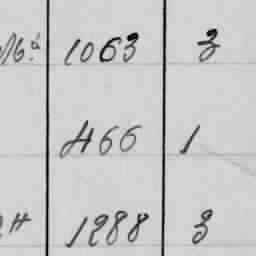 1063 3
466 1
1288 3